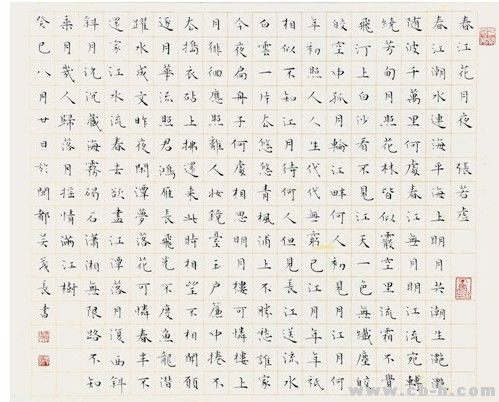 春江花月夜 張若虛
春江潮水連海平海上明月共潮生灧灧
隨波千萬里何處春江無月明江流宛轉
繞芳甸月照花林皆似霰空里流霜不覺
飛汀上白沙看不見江天一色無纖塵皎
皎空中孤月輪江畔何人初見月江月何
年初照人人生代代無窮已江月年年祇
相似不知江月待何人但見長江送流水
白雲一片去悠悠青楓浦上不勝愁誰家
今夜扁舟子何處相思明月樓可憐樓上
月徘徊應照離人妝鏡臺玉戶簾中捲不
去搗衣砧上拂還來此時相望不相聞願
逐月華流照君鴻雁長飛光不度魚龍潛
躍水成文昨夜閒潭夢落花可憐春半不
還家江水流春去欲盡江潭落月復西斜
斜月沉沉藏海霧碣石瀟湘無限路不知
乘月幾人歸落月搖情滿江樹
癸巳八月廿日於閩都吳茂長書